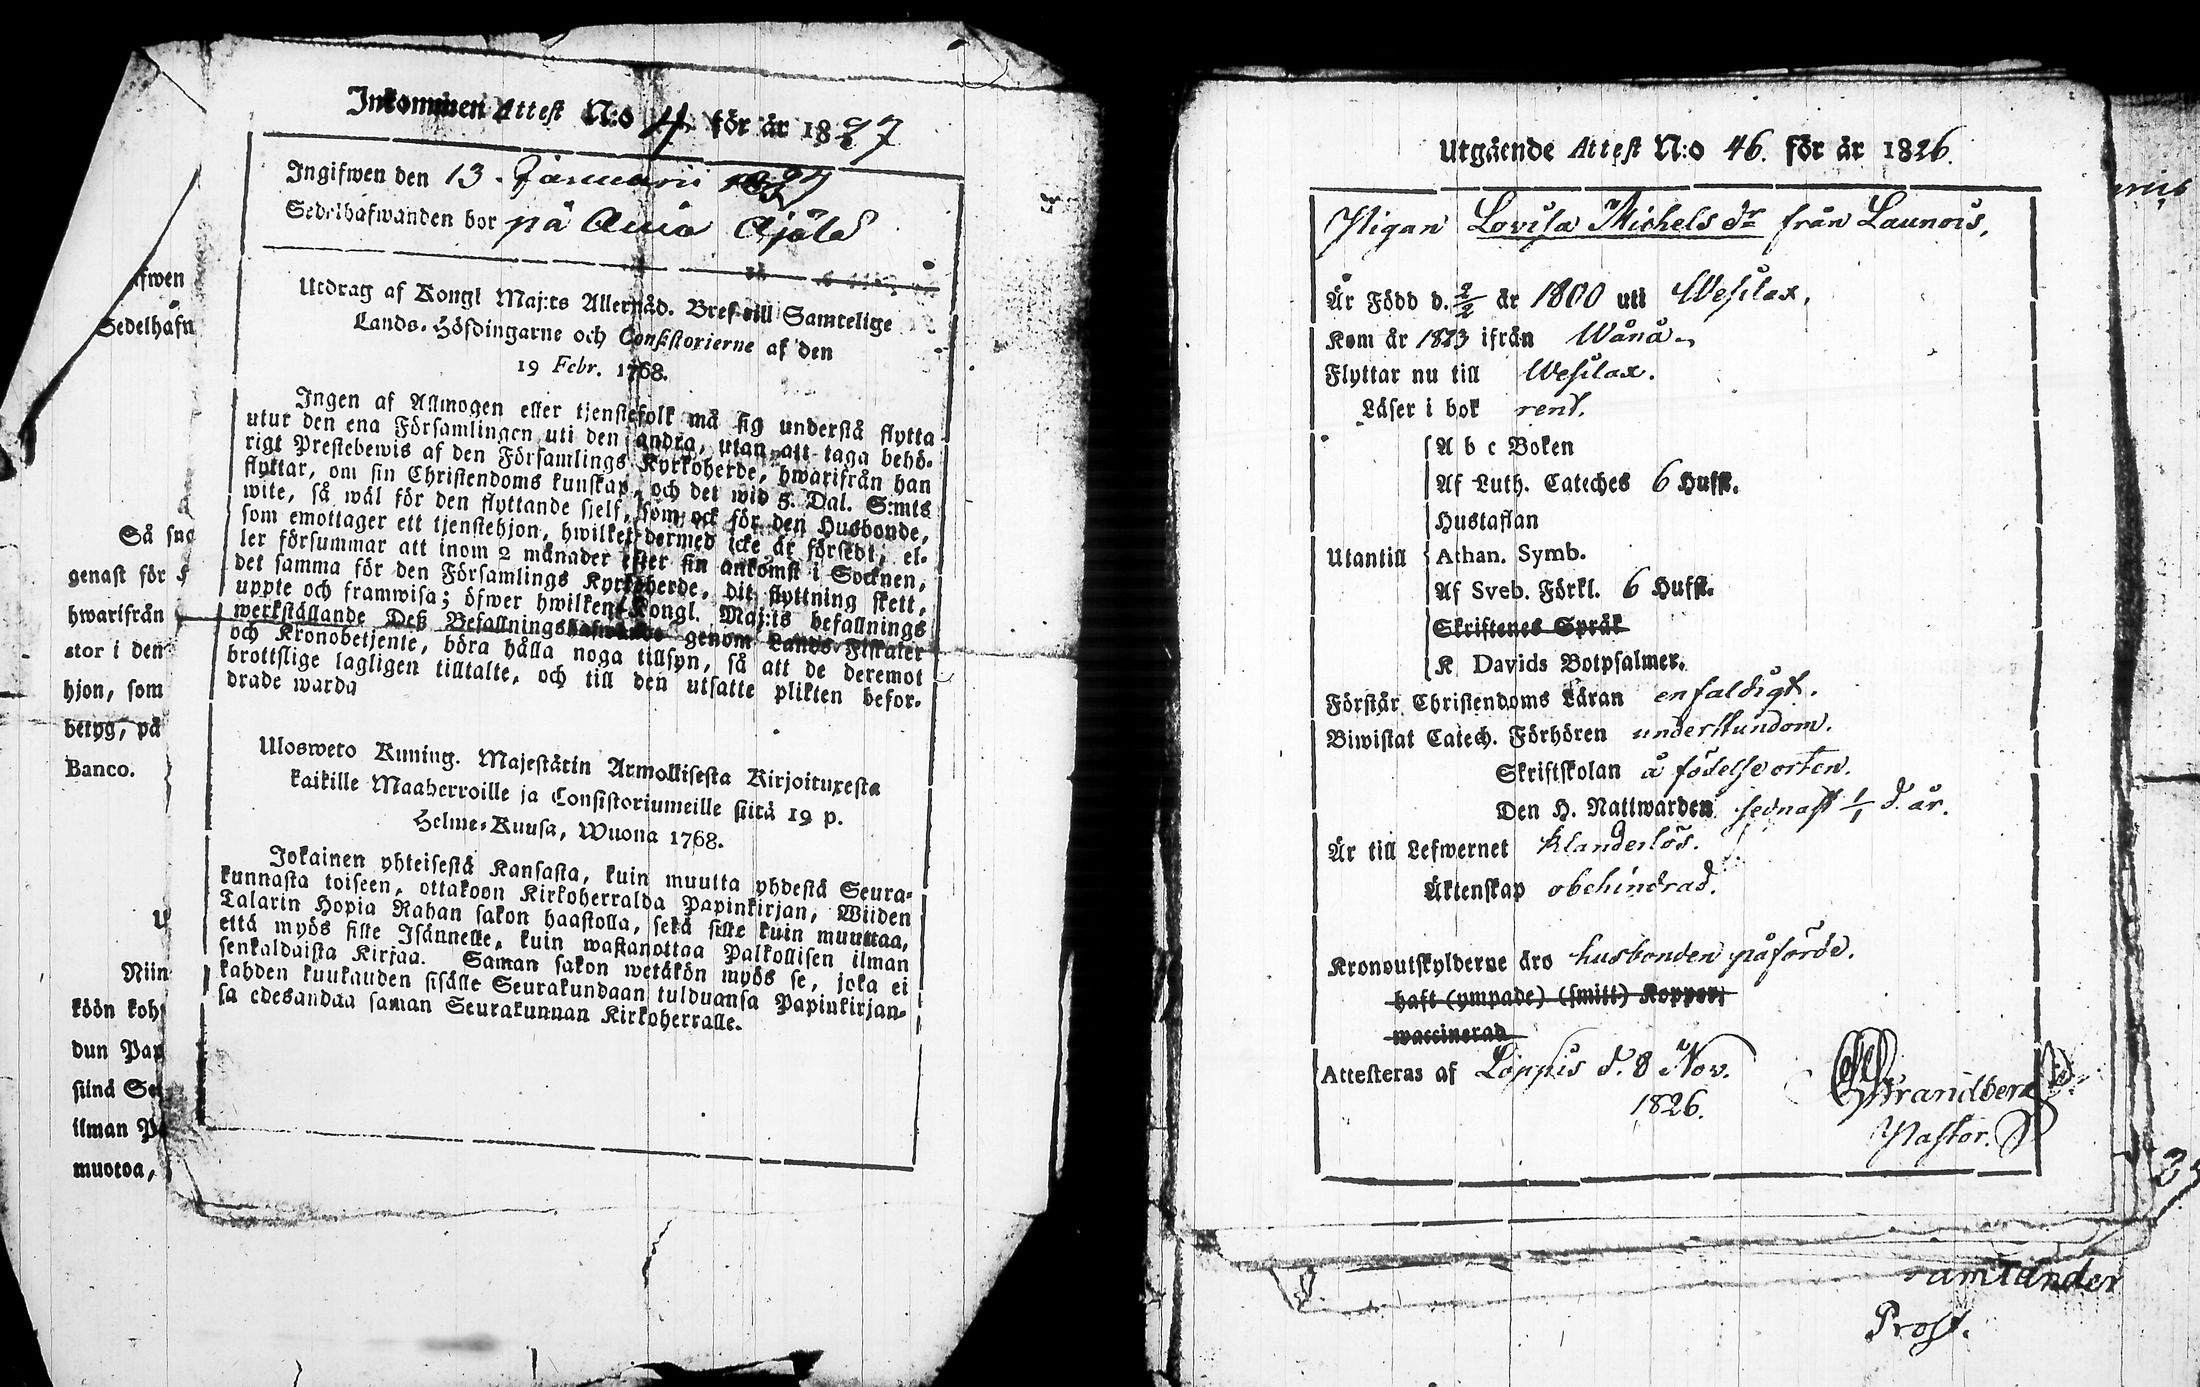 Inkommen Attest N:o 4 för år 1827
Ingifwen den 13. Januarii 1827
Sedelhafwanden bor på
Utdrag af Kongl Maj:ts Allernåd. Bref till Samtelige
Lands-Höfdingarne och Consistorierne af den
19 Febr. 1768.
Ingen af Allmogen eller tjenstefolk må sig understå flytta
utur den ena Församlingen uti den andra, utan att taga behö-
rigt Prestebewis af den Församlings Kyrkoherde, hwarifrån han
flyttar, om sin Christendoms kunskap, och det wid 5. Dal. S:mts
wite, så wäl för den flyttande sjelf, som ock för den Husbonde,
som emottager ett tjenstehjon, hwilket dermed icke är försedt, el-
ler försummar att inom 2 månader efter sin ankomst i Socknen,
det samma för den Församlings Kyrkoherde, dit flyttning skett,
uppte och framwisa; öfwer hwilken Kongl. Maj:ts befallnings
werkställande Deß Befallningshafwande genom Lands Fiskaler
och Kronobetjente, böra hålla noga tillsyn, så att de deremot
brottslige lagligen tilltalte, och till den utsatte plikten befor-
drade warda
Ulosweto Kuning. Majestätin Armollisesta Kirjoituxesta
kaikille Maaherroille ja Consistoriumeille siitä 19 p.
Helme-Kuusa, Wuona 1768.
Jokainen yhteisestä Kansasta, kuin muutta yhdestä Seura-
kunnasta toiseen, ottakoon Kirkoherralda Papinkirjan, Wiiden
Talarin Hopia Rahan sakon haastolla, sekä sille kuin muuttaa,
että myös sille Isännelle, kuin wastanottaa Palkollisen ilman
senkaldaista Kirjaa. Saman sakon wetäkön myös se, joka ei
kahden kuukauden sisälle Seurakundaan tulduansa Papinkirjan-
sa edesandaa saman Seurakunnan Kirkoherralle.
ifwen
Sedelhafw
Så
genast för
hwarifrån
stor i den
hjon, som
betyg, på
Banco.
U
Niin
köön koh
dun Pap
siinä Seu
ilman Pa
muotoa,
Utgående Attest N:o 46. för år 1826.
Pigan Lovisa Michels dr från Launois,
Är Född d. 2/2 år 1800 uti Wesilax,
Kom år 1823 ifrån Wånå
Flyttar nu till Wesilax.
Läser i bok rent.
A b c Boken
Af Luth. Cateches 6 Hufst.
Hustaflan
Utantill Athan. Symb.
Af Sveb. Förkl. 6 Hufst.
Skriftenes Språk
K Davids Botpsalmer.
Förstår Christendoms Läran enfaldigt.
Biwistat Catech. Förhören understundom.
Skriftskolan å födelse orten.
Den H. Nattwarden sednast 1/1 d. år.
Är till Lefwernet klanderlös.
Äktenskap obehindrad.
Kronoutskylderne äro husbonden påförde.
haft (ympade) (smitt) Koppor;
waccinerad
Attesteras af Loppis d. 8 Nov.
1826.
Strandberg
Pastor.
Prost.